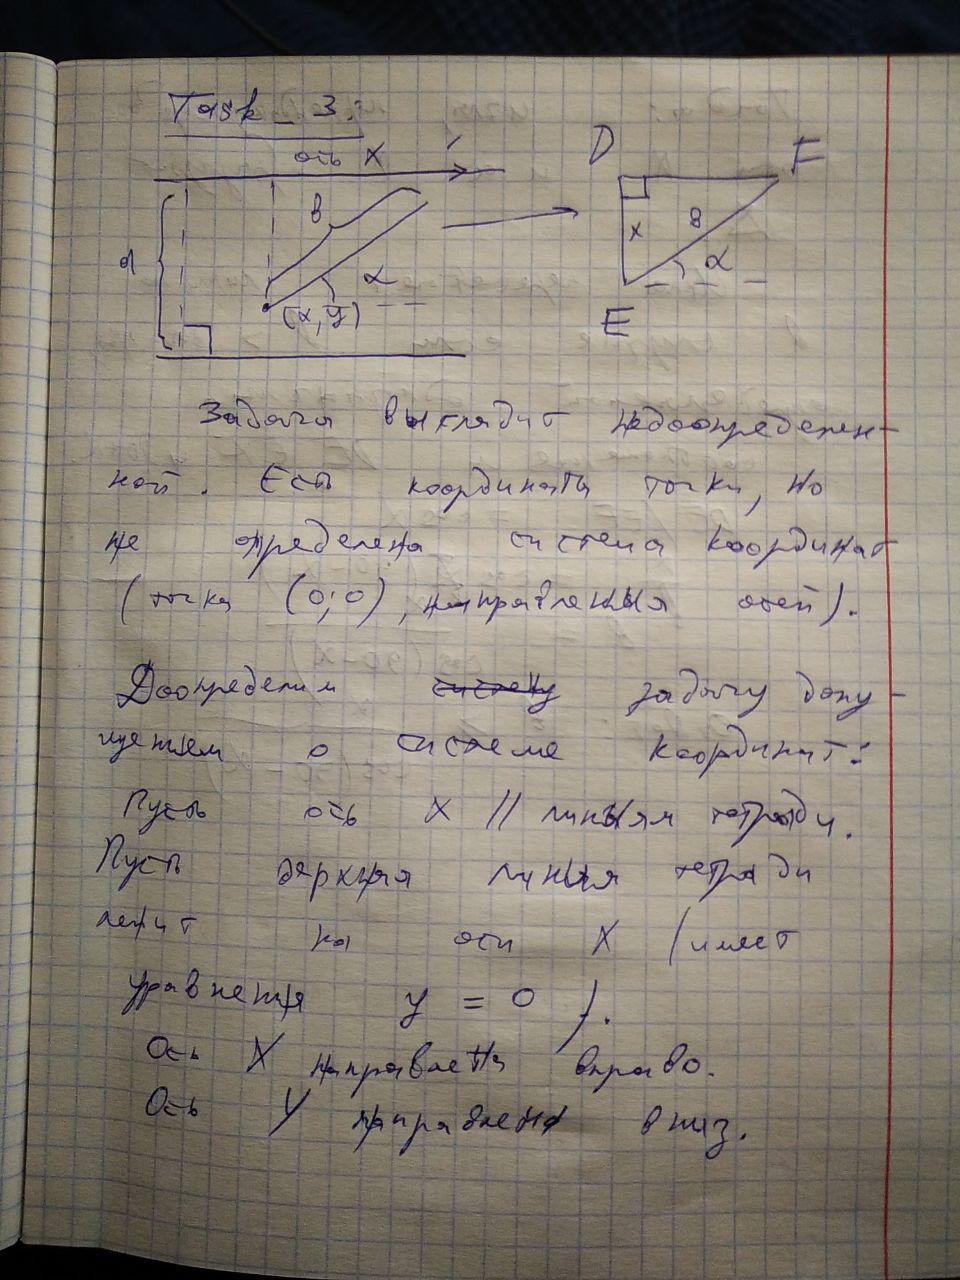 Task 3:
ось X
D
F
в
a
x
8
α
α
(x, y)
E
Задача выглядит недоопределен-
ной. Есть координаты точки, но
не определена система координат
(точка (0;0), направления осей).
Доопределим систему задачу допу-
щением о системе координат:
Пусть ось X // линиям тетради.
Пусть верхняя линия тетради
лежит на оси X (имеет
уравнения y = 0 ).
Ось X направлена вправо.
Ось Y направлена вниз.